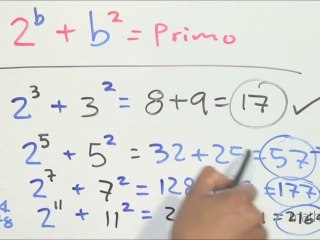 2^b + b^2 = Primo
2^3 + 3^2 = 8+9 = 17 ✓
2^5 + 5^2 = 32+25=57
2^7 + 7^2 = 128 = 177
2^11 + 11^2 = 2